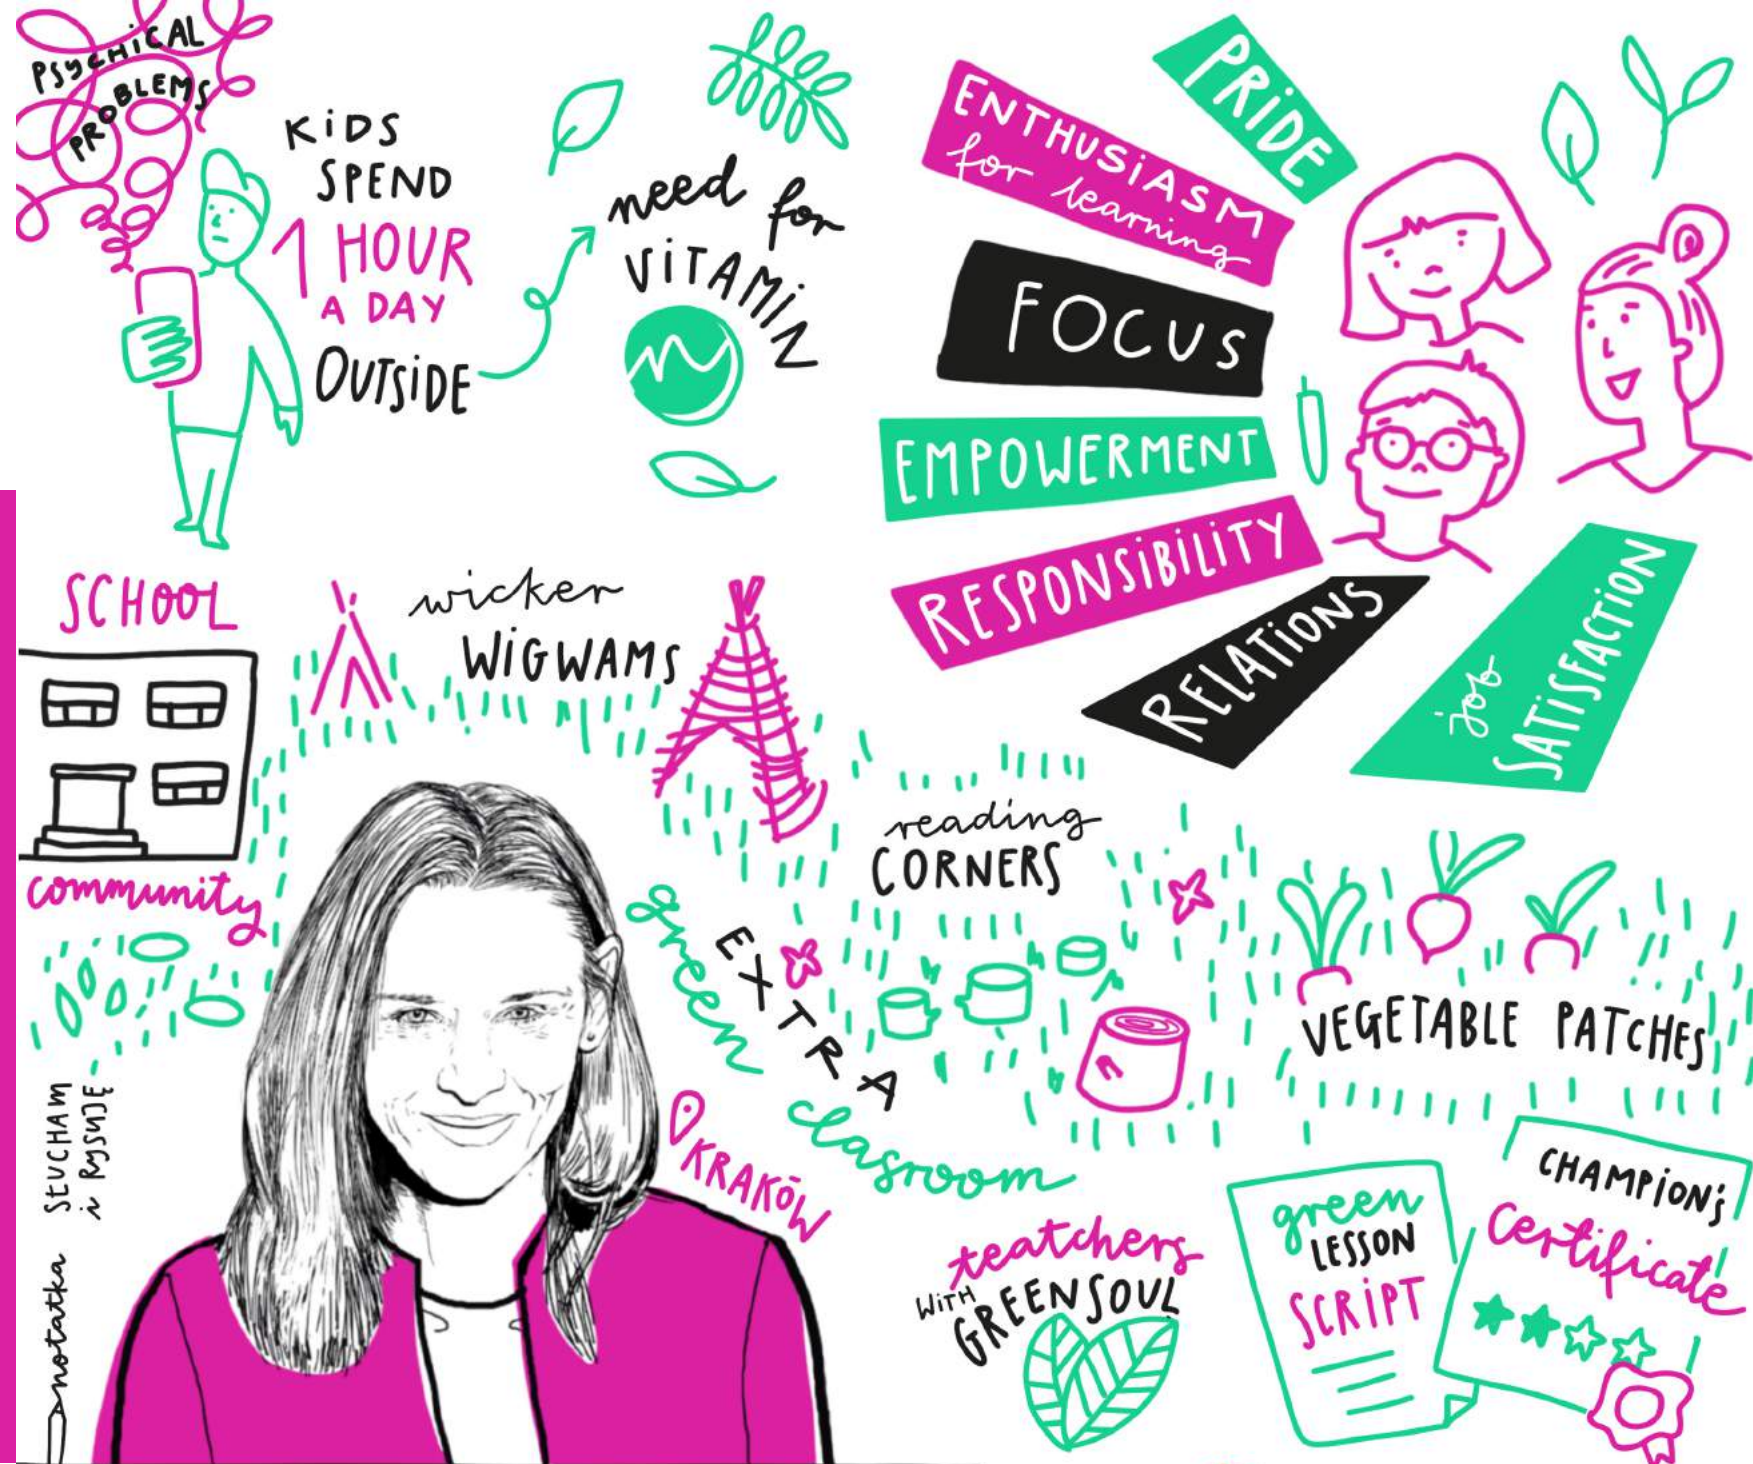 PSYCHiCAL
PROBLEMS
KiDS
SPEND
1 HOUR
A DAY
OUTSiDE
need for
ViTAMiN
N
PRiDE
ENTHUSiASM
for learning
FOCUS
EMPOWERMENT
RESPONSiBiLiTY
RELATiONS
job
SATiSFACTiON
SCHOOL
community
wicker
WiGWAMS
reading
CORNERS
green
EXTRA
clasroom
VEGETABLE PATCHES
KRAKÓW
teatchers
WiTH
GREEN SOUL
green
LESSON
SCRiPT
CHAMPiON's
Certificate
notatka SŁUCHAM
i RysuJĘ